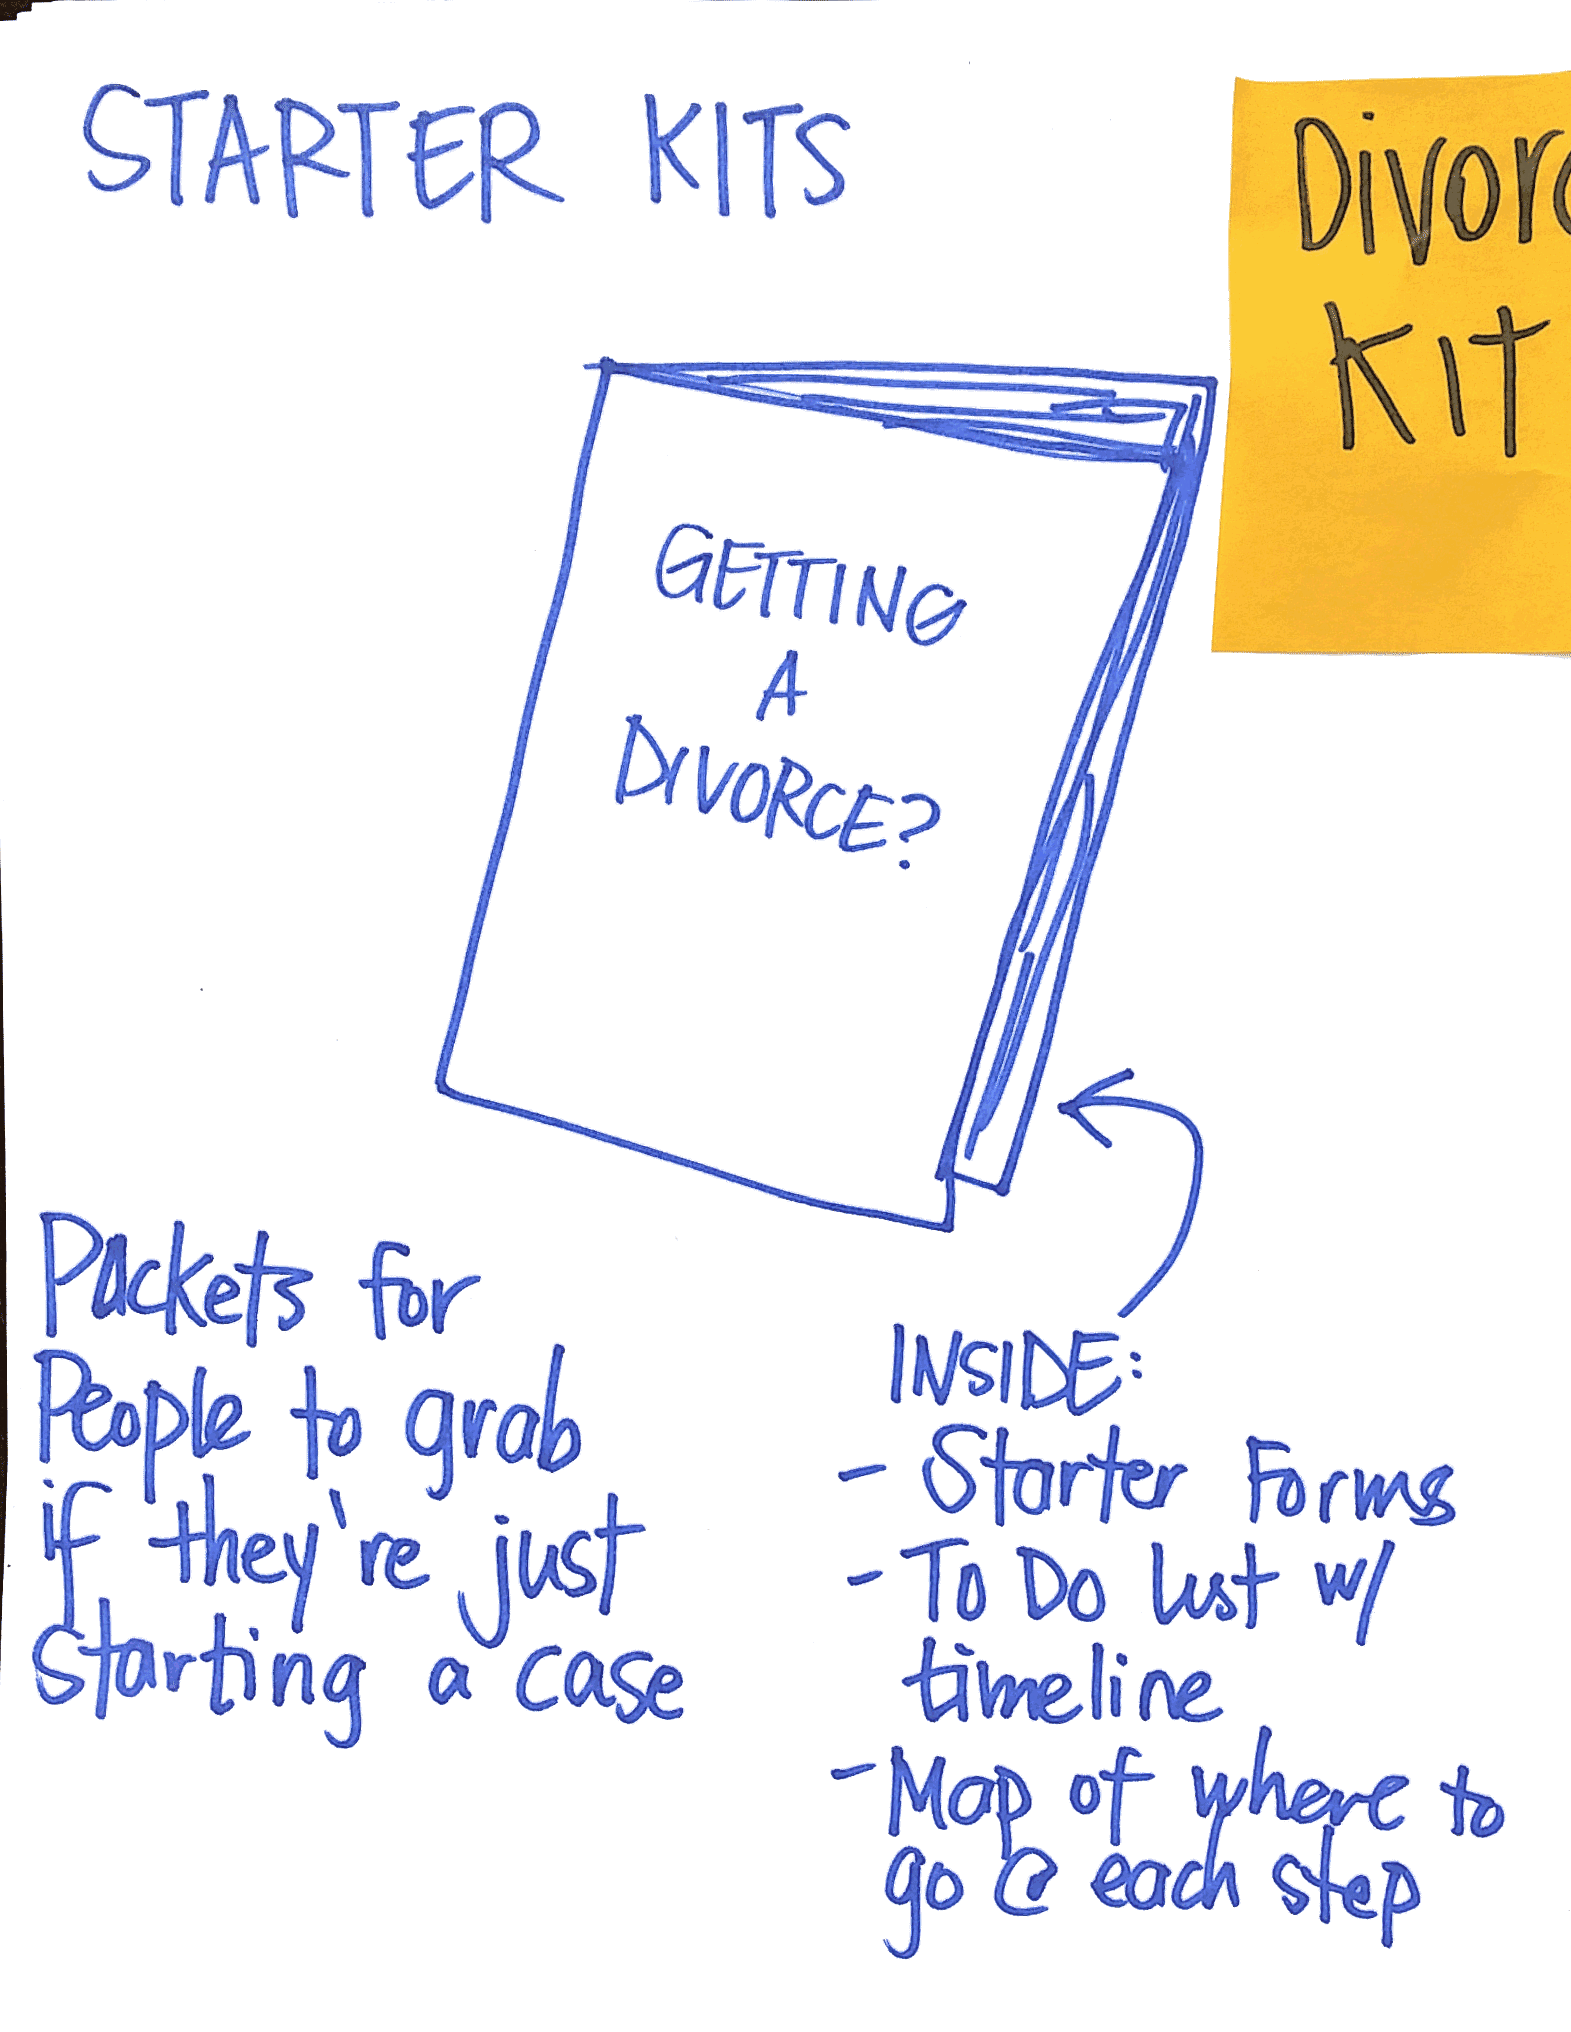 STARTER KITS
Divorc
Kit
GETTING
A
DIVORCE?
Packets for
People to grab
if they're just
starting a case
INSIDE:
- Starter Forms
- To Do List w/
timeline
- Map of where to
go @ each step